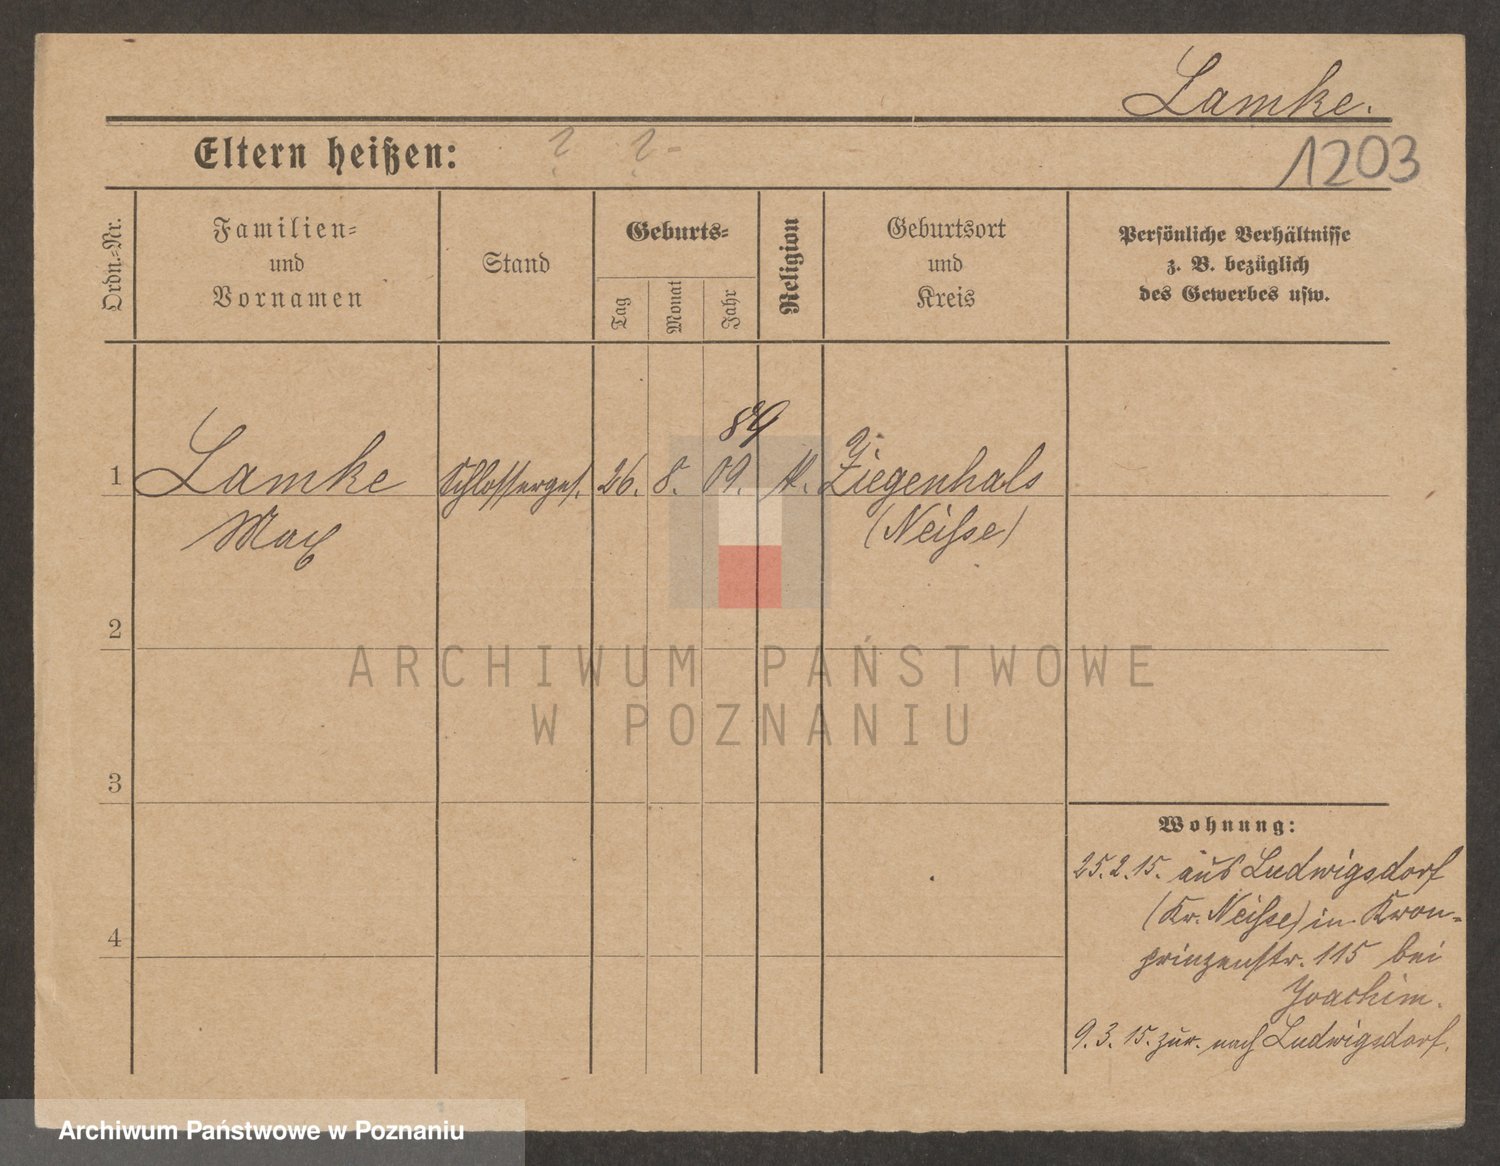 Lamke.
Eltern heißen: ? ? -
1203
Ordn.-Nr.
Familien-
und
Vornamen
Stand
Geburts-
Tag
Monat
Jahr
Religion
Geburtsort
und
Kreis
Persönliche Verhältnisse
z. B. bezüglich
des Gewerbes usw.
89
1 Lamke Schlosserges. 26. 8. 09. k. Ziegenhals
Max (Neisse)
2
3
4
Wohnung:
25.2.15. aus Ludwigsdorf
(Kr. Neisse) in Kron-
prinzenstr. 115 bei
Joachim.
9.3.15. zur. nach Ludwigsdorf.
ARCHIWUM PAŃSTWOWE
W POZNANIU
Archiwum Państwowe w Poznaniu